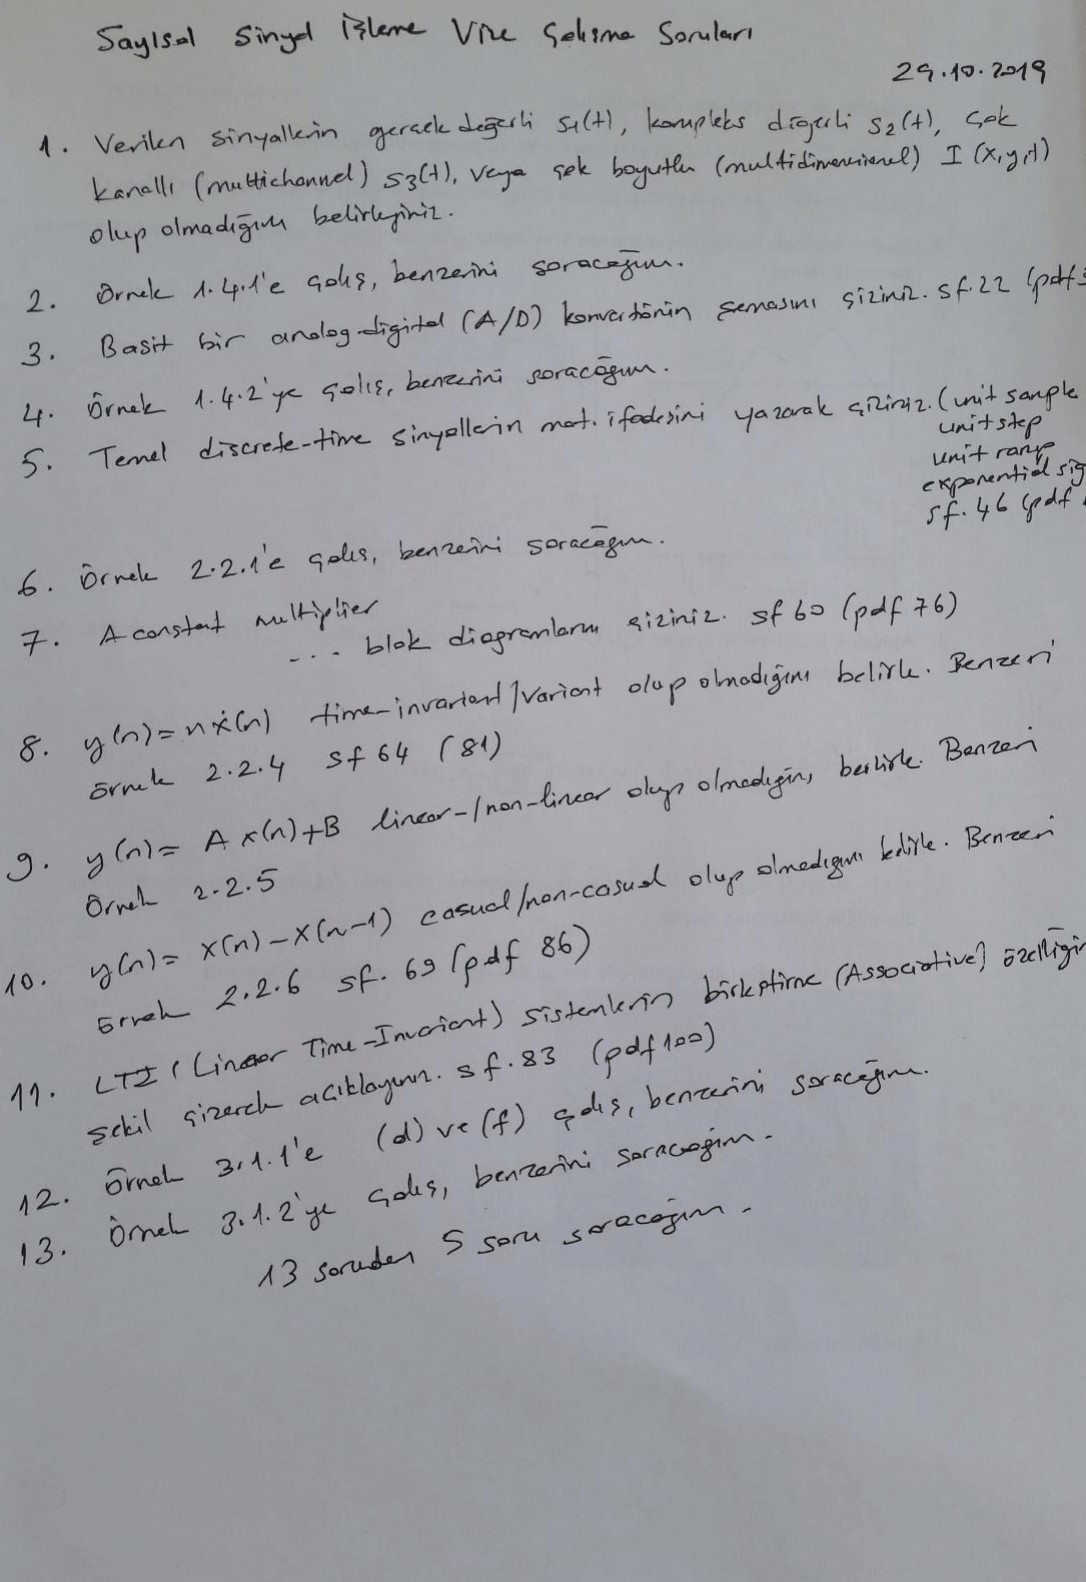 Sayısal Sinyal İşleme Vize Çalışma Soruları
29.10.2019
1. Verilen sinyallerin gerçek değerli s1(t), kompleks değerli s2(t), çok
kanallı (multichannel) s3(t), veya çok boyutlu (multidimensional) I (x,y,t)
olup olmadığını belirleyiniz.
2. Örnek 1.4.1'e çalış, benzerini soracağım.
3. Basit bir analog-digital (A/D) konvertörün şemasını çiziniz. sf.22 (pdf 3
4. Örnek 1.4.2'ye çalış, benzerini soracağım.
5. Temel discrete-time sinyallerin mat. ifadesini yazarak çiziniz. (unit sample
unit step
unit ramp
exponential sig
sf. 46 (pdf
6. Örnek 2.2.1'e çalış, benzerini soracağım.
7. A constant multiplier
... blok diagramlarını çiziniz. sf 60 (pdf 76)
8. y(n)= nx(n) time-invariant/variant olup olmadığını belirle. Benzeri
örnek 2.2.4 sf 64 (81)
9. y(n)= A x(n)+B linear-/non-linear olup olmadığını belirle. Benzeri
Örnek 2.2.5
10. y(n)= x(n)-x(n-1) casual/non-casual olup olmadığını belirle. Benzeri
örnek 2.2.6 sf. 69 (pdf 86)
11. LTI (Linear Time-Invariant) sistemlerin birleştirme (Associative) özelliğin
şekil çizerek açıklayınız. sf.83 (pdf 100)
12. Örnek 3.1.1'e (d) ve (f) çalış, benzerini soracağım.
13. Örnek 3.1.2'ye çalış, benzerini soracağım.
13 sorudan 5 soru soracağım.